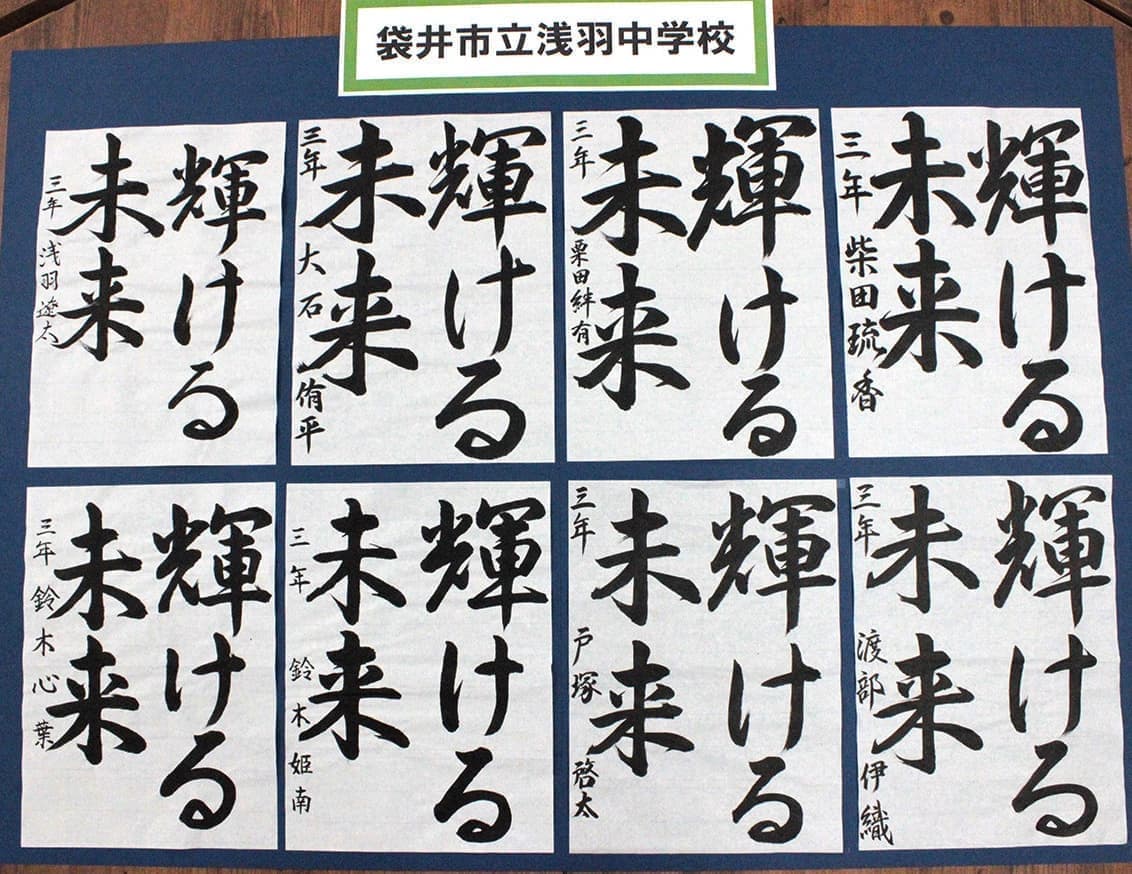 袋井市立浅羽中学校
輝ける
未来
三年 柴田琉香
輝ける
未来
三年 栗田絆有
輝ける
未来
三年 大石侑平
輝ける
未来
三年 浅羽遼太
輝ける
未来
三年 渡部伊織
輝ける
未来
三年 戸塚啓太
輝ける
未来
三年 鈴木姫南
輝ける
未来
三年 鈴木心葉